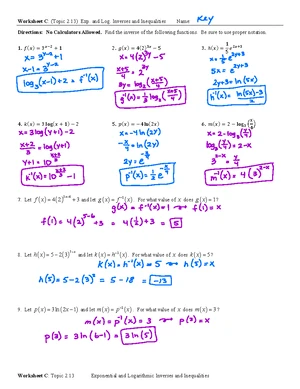 Worksheet C (Topic 2.13) Exp. and Log. Inverses and Inequalities Name Key
Directions: No Calculators Allowed. Find the inverse of the following functions. Be sure to use proper notation.
1. f(x) = 3^(x−2) + 1
x = 3^(y−2) + 1
x − 1 = 3^(y−2)
log₃(x−1) + 2 = f⁻¹(x)
2. g(x) = 4(2)^(3x) − 5
x = 4(2)^(3y) − 5
(x+5)/4 = 2^(3y)
3y = log₂(x+5)/4
g⁻¹(x) = 1/3 log₂(x+5)/4
5x = e^(2y+3)
2y+3 = ln(5x)
h⁻¹(x) = (ln(5x) − 3)/2
4. k(x) = 3 log(x + 1) − 2
x = 3 log(y+1) − 2
(x+2)/3 = log(y+1)
y + 1 = 10^((x+2)/3)
k⁻¹(x) = 10^((x+2)/3) − 1
5. p(x) = −4 ln(2x)
x = −4 ln(2y)
−x/4 = ln(2y)
2y = e^(−x/4)
p⁻¹(x) = 1/2 e^(−x/4)
6. m(x) = 2 − log₃(x/4)
x = 2 − log₃(y/4)
log₃(y/4) = 2 − x
3^(2−x) = y/4
m⁻¹(x) = 4(3)^(2−x)
7. Let and let g(x) = f⁻¹(x). For what value of x does g(x) = 1?
g(x) = f⁻¹(x) = 1 → f(1) = x
f(1) = 4(2)^(5−6) + 3 = 4(1/2) + 3 = 5
8. Let h(x) = 5 − 2(3)^ and let k(x) = h⁻¹(x). For what value of x does k(x) = 5?
k(x) = h⁻¹(x) = 5 → h(5) = x
h(5) = 5 − 2(3)² = 5 − 18 = −13
9. Let p(x) = 3 ln(2x − 1) and let m(x) = p⁻¹(x). For what value of x does m(x) = 3?
m(x) = p⁻¹(x) = 3 → p(3) = x
p(3) = 3 ln(6−1) = 3 ln(5)
Worksheet C Topic 2.13 Exponential and Logarithmic Inverses and Inequalities